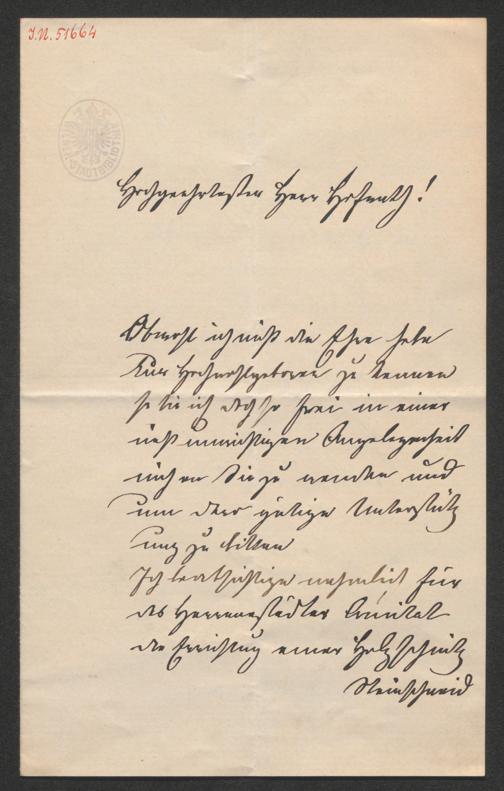 I.N. 51664
Hochgeehrtester Herr Hofrath!
Obwohl ich nicht die Ehre habe
Euer Hochwohlgeboren zu kennen
so bin ich doch so frei in einer
nicht unwichtigen Angelegenheit
mich an Sie zu wenden und
um dero gütige Unterstütz
ung zu bitten
Ich beabsichtige nehmlich für
das
die Errichtung einer Holzschnitz
Steinschneid